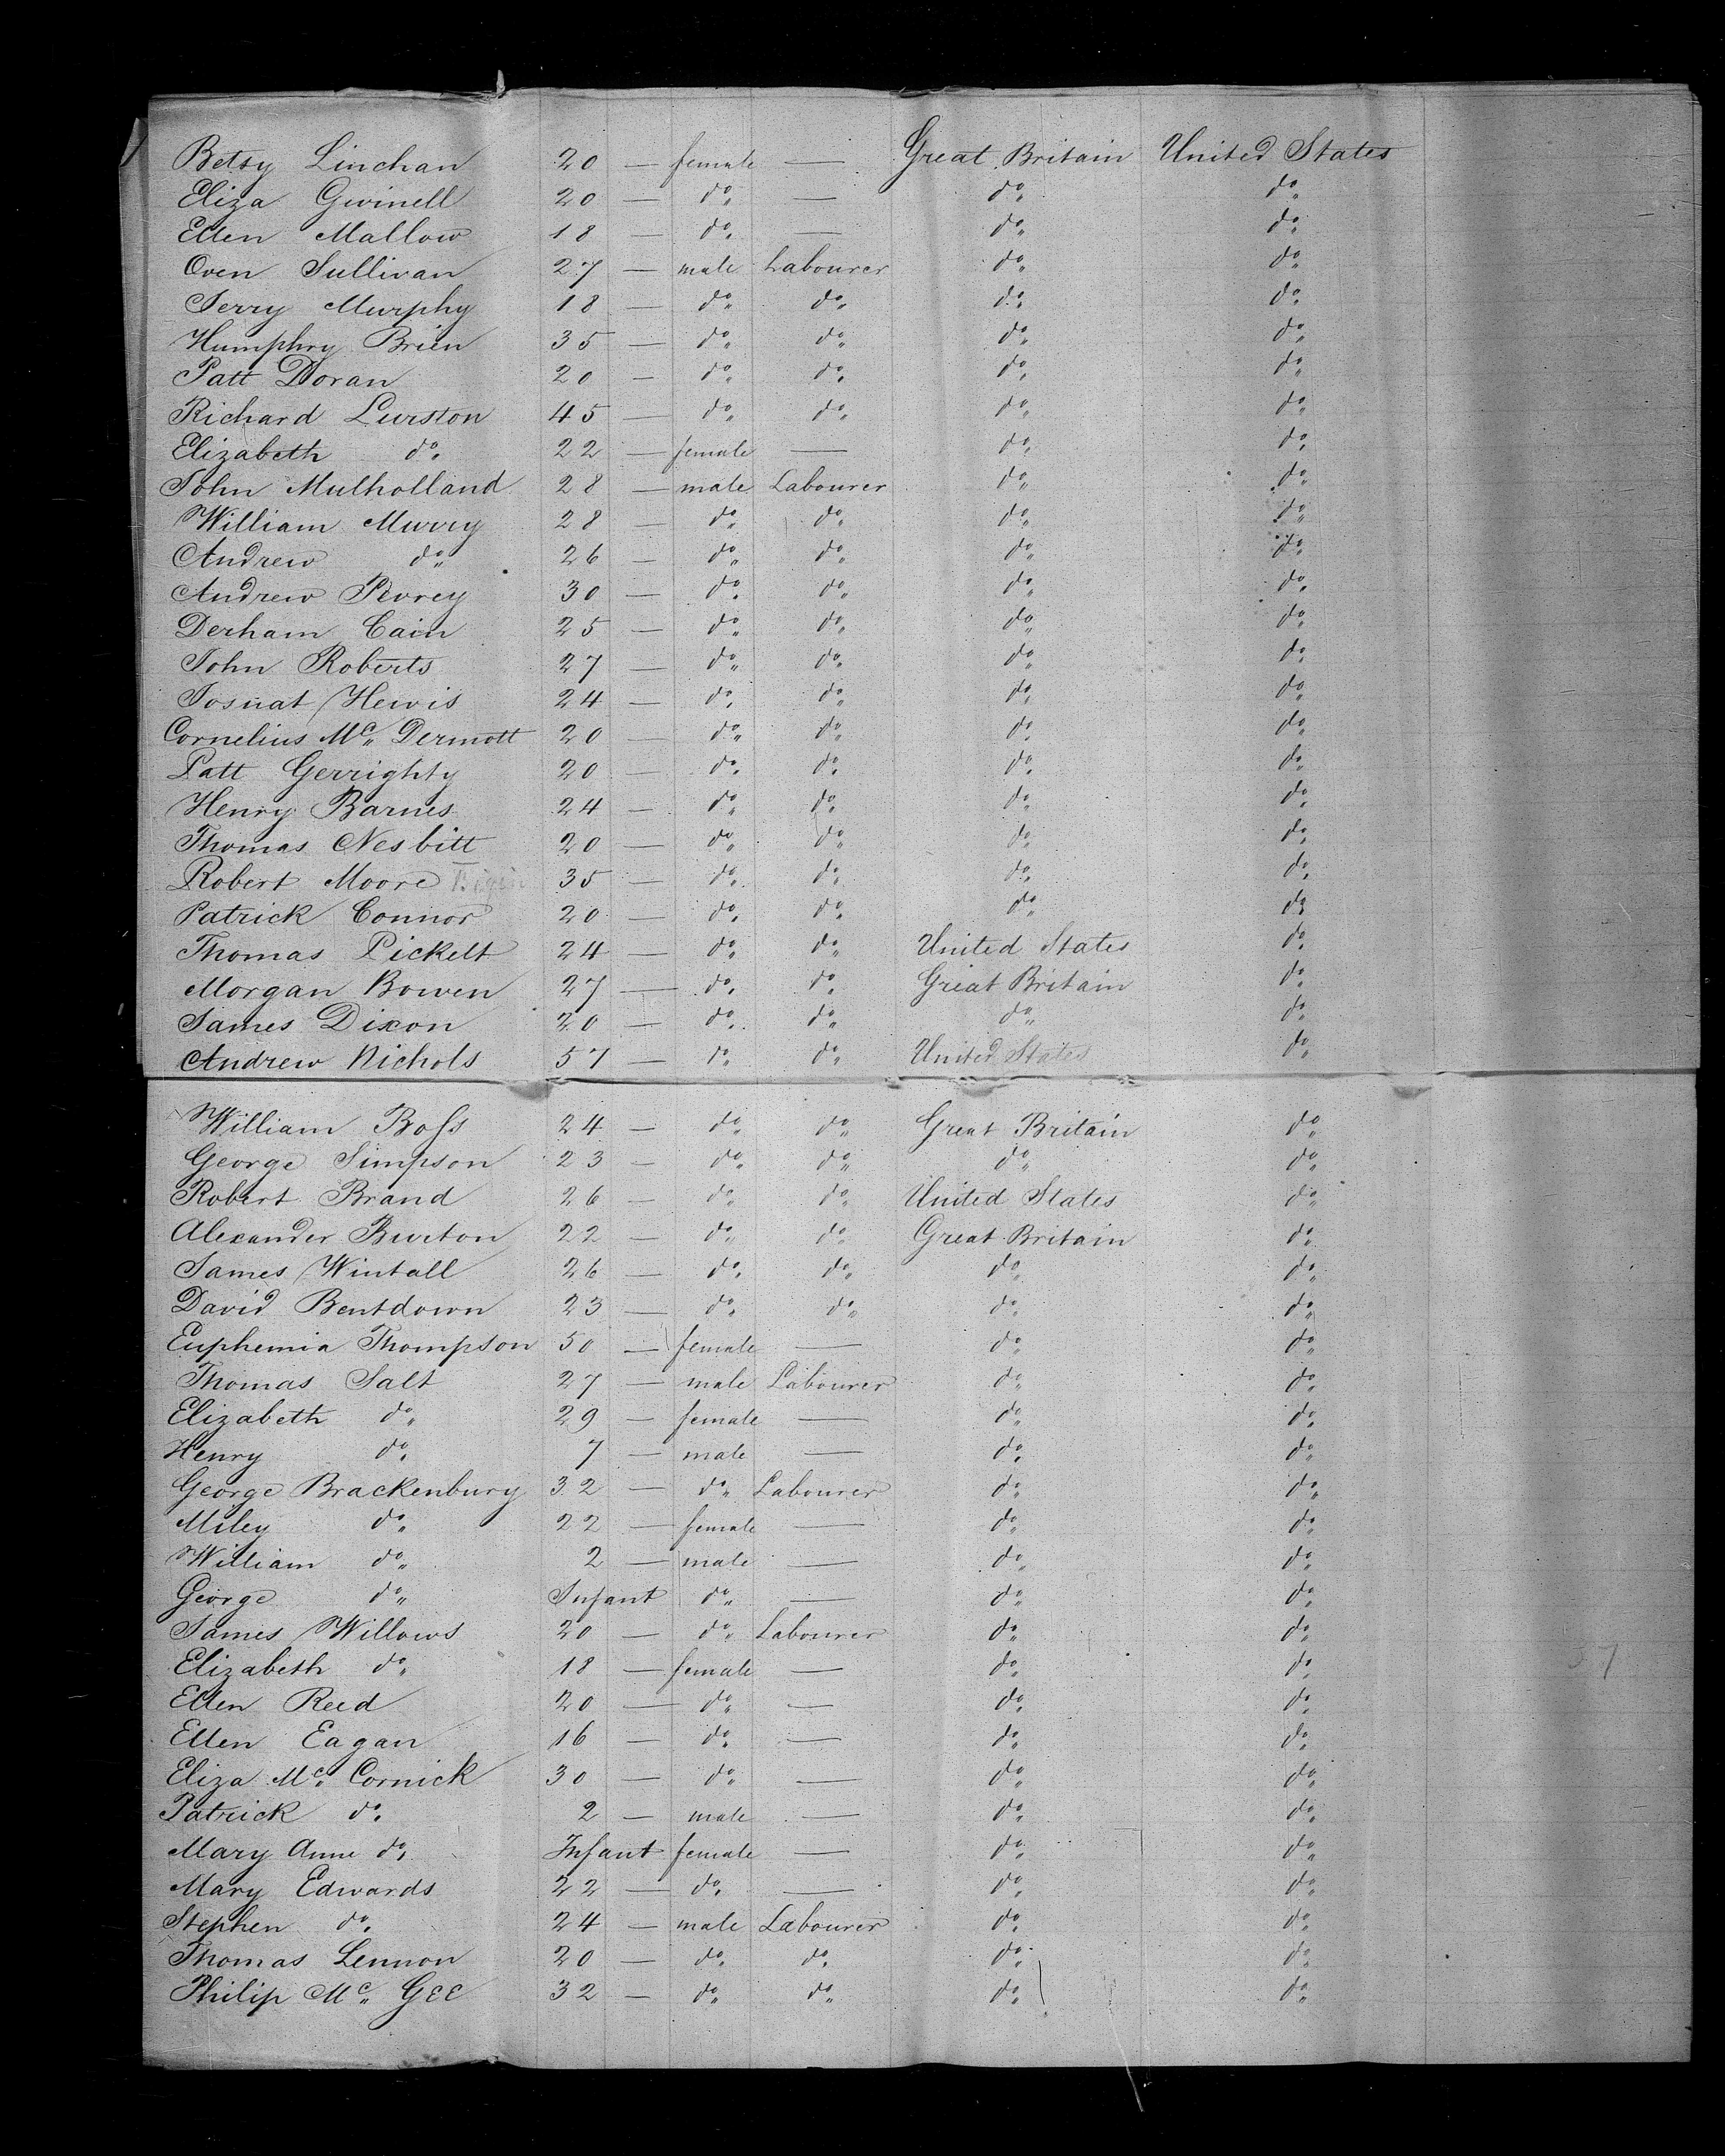 Betsy Linchan 20 — female — Great Britain United States
Eliza Gwinell 20 — do — do do
Ellen Mallow 18 — do — do do
Owen Sullivan 27 — male Labourer do do
Jerry Murphy 18 — do do do do
Humphry Brien 35 — do do do do
Patt Doran 20 — do do do do
Richard Lurston 45 — do do do do
Elizabeth do 22 — female — do do
John Mulholland 28 — male Labourer do do
William Murry 28 — do do do do
Andrew do 26 — do do do do
Andrew 30 — do do do do
Derham Cain 25 — do do do do
John Roberts 27 — do do do do
Hewis 24 — do do do do
Cornelius Mc Dermott 20 — do do do do
Patt Gerrighty 20 — do do do do
Henry Barnes 24 — do do do do
Thomas Nesbitt 20 — do do do do
Robert Moore 35 — do do do do
Patrick Connor 20 — do do do do
Thomas Pickett 24 — do do United States do
Morgan Bowen 27 — do do Great Britain do
James Dixon 20 — do do do do
Andrew Nichols 57 — do do United States do
William Boss 24 — do do Great Britain do
George Simpson 23 — do do do do
Robert Brand 26 — do do United States do
Alexander Burton 22 — do do Great Britain do
James Wintall 26 — do do do do
David Bentdown 23 — do do do do
Euphemia Thompson 50 — female — do do
Thomas Salt 27 — male Labourer do do
Elizabeth do 29 — female — do do
Henry do 7 — male — do do
George Brackenbury 32 — do Labourer do do
Miley do 22 — female — do do
William do 2 — male — do do
George do Infant do — do do
James Willows 20 — do Labourer do do
Elizabeth do 18 — female — do do
Ellen Reed 20 — do — do do
Ellen Eagan 16 — do — do do
Eliza Mc Cornick 30 — do — do do
Patrick do 2 — male — do do
Mary Anne do Infant female — do do
Mary Edwards 22 — do — do do
Stephen do 24 — male Labourer do do
Thomas Lennon 20 — do do do do
Philip Mc Gee 32 — do do do do